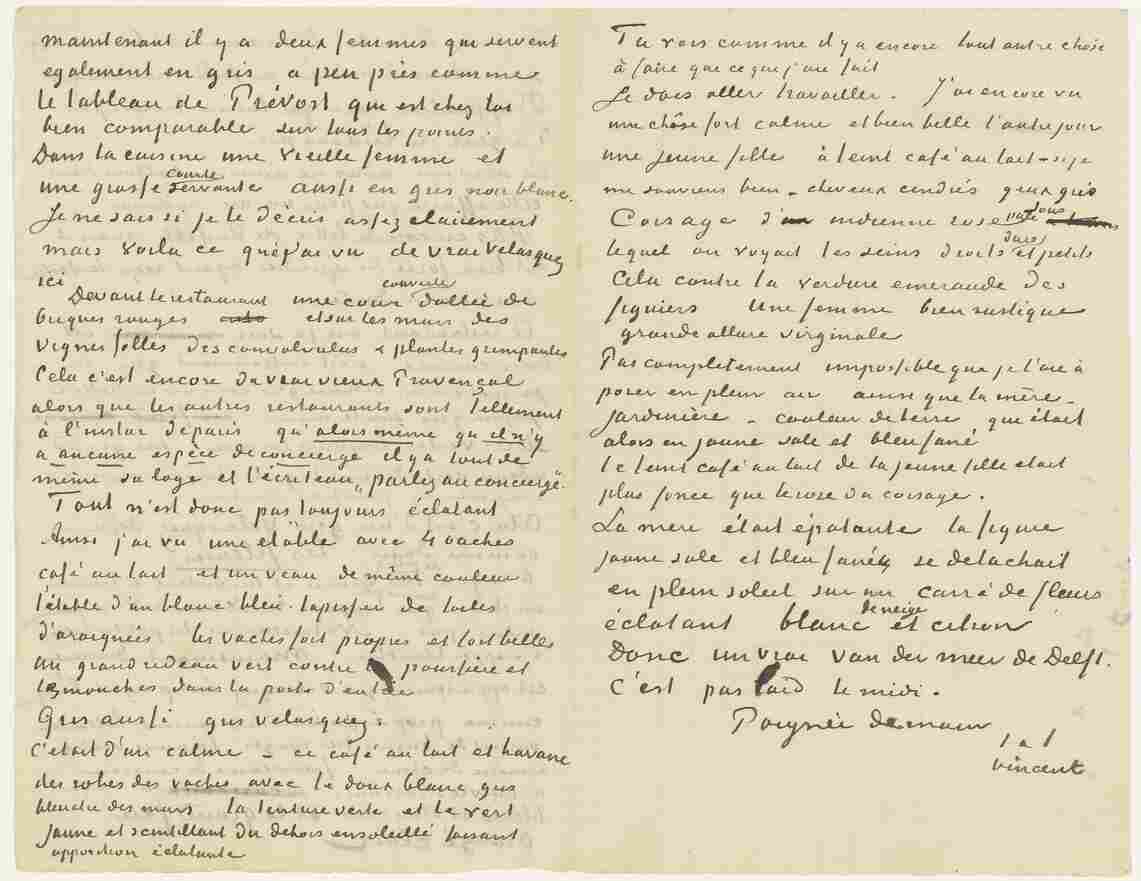 maintenant il y a deux femmes qui servent
egalement en gris a peu près comme
le tableau de Prévost qui est chez toi
bien comparable sur tous les points.
Dans la cuisine une vieille femme et
une grosse courte servante aussi en gris noir blanc.
Je ne sais si je te décris assez clairement
mais voila ce que j'ai vu de vrai Velasquez
ici
Devant le restaurant une cour couverte dallée de
briques rouges et sur les murs des
vignes folles des convolvulus & plantes grimpantes
Cela c'est encore du vrai vieux Provençal
alors que les autres restaurants sont tellement
à l'instar de paris qu'alors même qu'il n'y
a aucune espèce de concierge il y a tout de
même sa loge et l'écriteau „parlez au concierge”.
Tout n'est donc pas toujours éclatant
Ainsi j'ai vu une étable avec 4 vaches
café au lait et un veau de même couleur
l'étable d'un blanc bleu tapissé de toiles
d'araignées les vaches fort propres et fort belles
un grand rideau vert contre poussière et
les mouches dans la porte d'entrée
Gris aussi gris velasquez:
c'était d'un calme – ce café au lait et havane
des robes des vaches avec le doux blanc gris
bleuatre des murs la tenture verte et le vert
jaune et scintillant du dehors ensoleillé faisant
opposition éclatante
Tu vois comme il y a encore tout autre chôse
à faire que ce que j'ai fait
Je dois aller travailler. J'ai encore vu
une chôse fort calme et bien belle l'autre jour
une jeune fille à teint café au lait – si je
me souviens bien – cheveux cendrés yeux gris
Corsage d'indienne rose pâle sous
lequel on voyait les seins droits durs et petits
Cela contre la verdure emeraude des
figuiers Une femme bien rustique
grande allure virginale
Pas completement impossible que je l'aie à
poser en plein air ainsi que la mère –
jardinière – couleur de terre qui était
alors en jaune sale et bleu fané
le teint café au lait de la jeune fille etait
plus foncé que le rose du corsage.
La mère était épatante la figure
jaune sale et bleu fané se detachait
en plein soleil sur un carré de fleurs
éclatant blanc de neige et citron
Donc un vrai Van der meer de Delft.
C'est pas laid le midi.
Poignée de main
t. à t.
Vincent